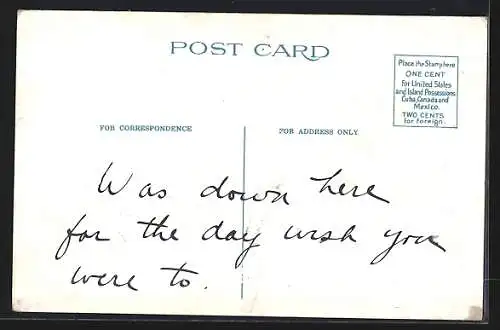 POST CARD
Place the Stamp here
ONE CENT
For United States
and Island Possessions
Cuba, Canada and
Mexico.
TWO CENTS
for Foreign.
FOR CORRESPONDENCE
FOR ADDRESS ONLY.
Was down here
for the day wish you
were to.